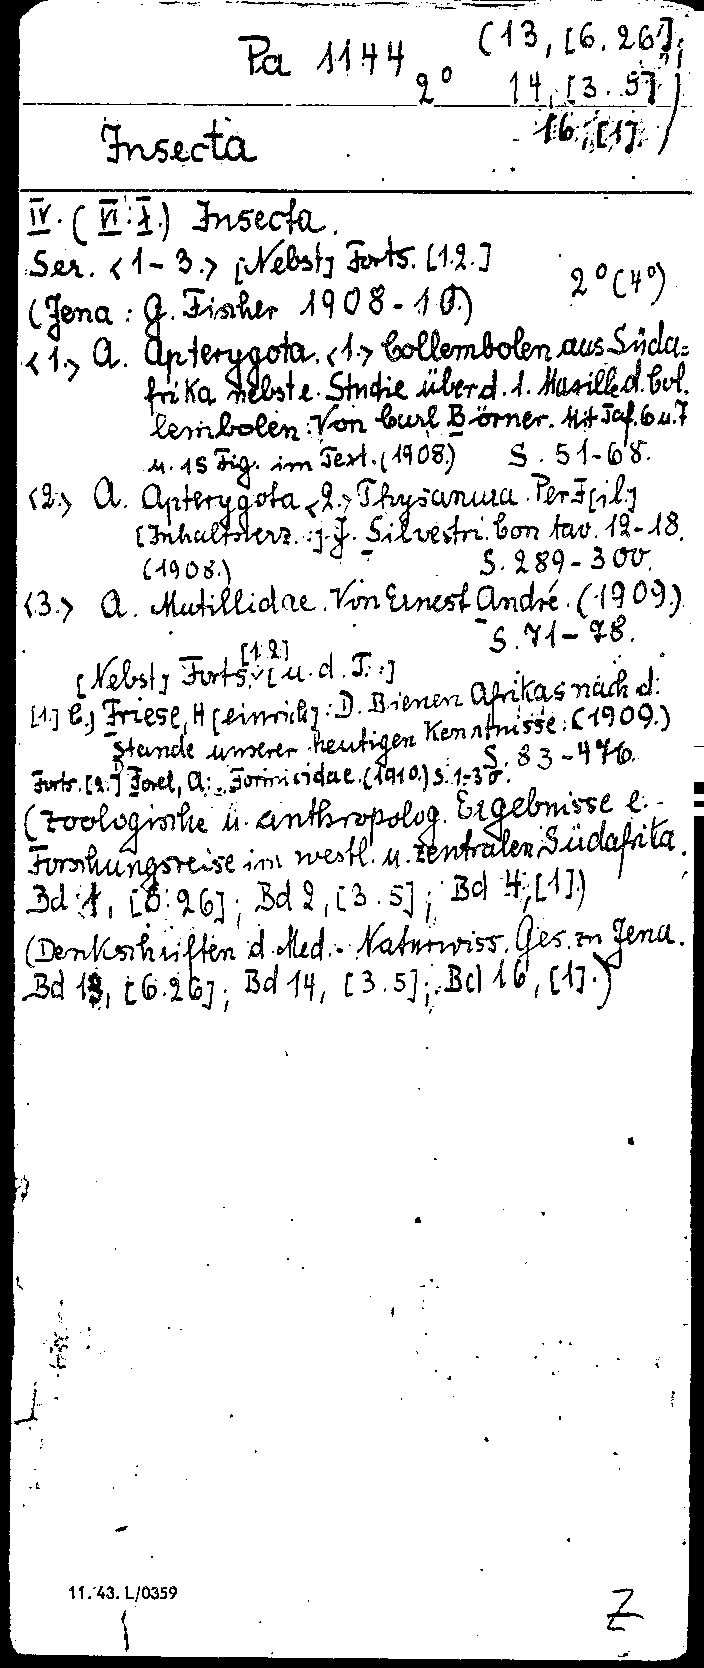 Pa 1144 2° (13, [6. 26];
14, [3. 5]
16, [1].)
Insecta
IV. (VI: I.) Insecta.
Ser. <1-3.> [Nebst] Forts. [1.2.]
2° (4°)
(Jena: G. Fischer 1908-10.)
<1.> A. Apterygota. <1.> Collembolen aus Süda=
frika nebst e. Studie über d. 1. Maxille d. Col.
lembolen: Von Carl Börner. Mit Taf. 6 u. 7
u. 15 Fig. im Text. (1908.) S. 51-68.
<2.> A. Apterygota <2.> Thysanura. Per F[il.]
[Inhaltsverz.:] F. Silvestri. Con tav. 12-18.
(1908.) S. 289-300.
<3.> A. Mutillidae. Von Ernest André. (1909.)
S. 71-78.
[Nebst] Forts. [1.2] [u. d. T.:]
[1.] C.] Friese, H[einrich]: D. Bienen Afrikas nach d.
Stande unserer heutigen Kenntnisse. (1909.)
S. 83-476.
Forts. [2.] Forel, A.: Formicidae. (1910.) S. 1-30.
(Zoologische u. anthropolog. Ergebnisse e.
Forschungsreise im westl. u. zentralen Südafrika.
Bd 1, [6. 26]; Bd 2, [3. 5]; Bd 4, [1].)
(Denkschriften d. Med.-Naturwiss. Ges. zu Jena.
Bd 13, [6. 26]; Bd 14, [3. 5]; Bd 16, [1].)
11. 43. L/0359
Z